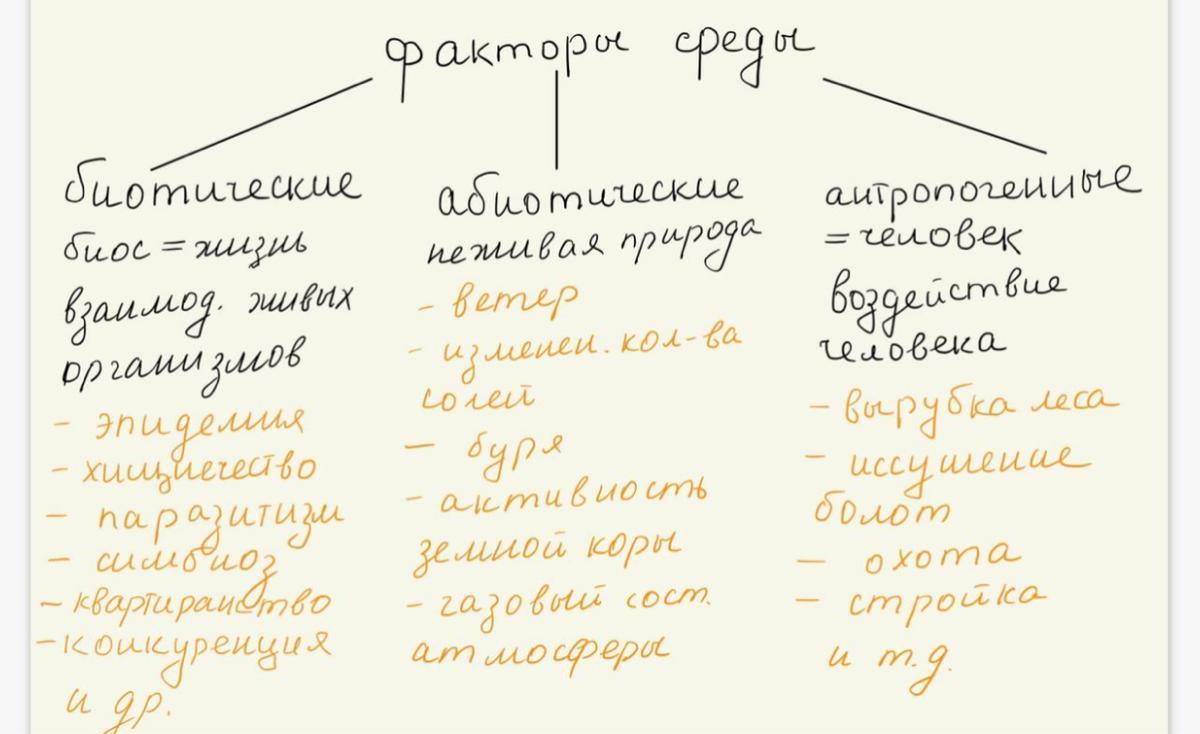 факторы среды
биотические
биос = жизнь
взаимод. живих
организмов
- эпидемия
- хищничество
- паразитизм
- симбиоз
- квартиранство
- конкуренция
и др.
абиотические
неживая природа
- ветер
- изменен. кол-ва
солей
- буря
- активность
земной коры
- газовый сост.
атмосферы
антропогенные
= человек
воздействие
человека
- вырубка леса
- иссушение
болот
- охота
- стройка
и т.д.